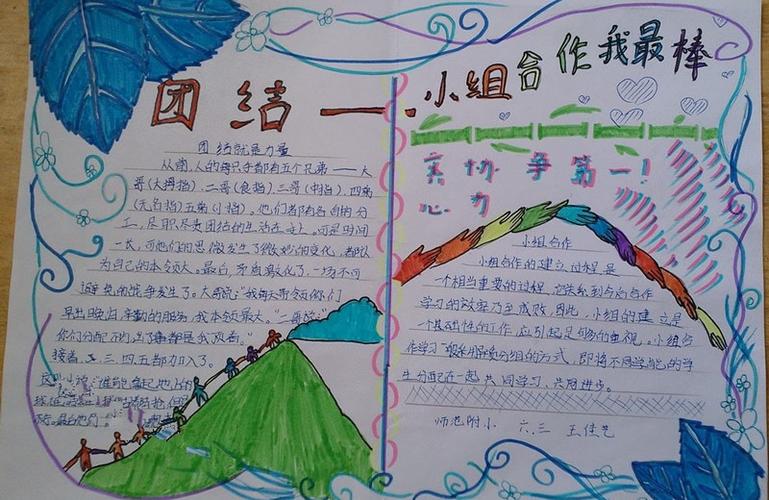 团结一
小组合作我最棒
团结就是力量
从前,人的每只手都有五个兄弟——大
哥(大拇指)、二哥(食指)、三哥(中指)、四弟
(无名指)五弟(小指)。他们都有各自的分
工,尽职尽责团结的生活在
一长,可他们的思
发生了微妙的变化,都认
为自己的本领大。最后,矛盾激化了,一场不可
避免的战争发生了。大哥说:“我每天带领你们
早出晚归,辛勤的服务,我本领最大。”二哥
你们分配
接着三、四、五都加入了。
齐心协力 争第一!
小组合作
小组合作的建立过程是
一个相当重要的过程,它关系到今后合作
学习的效率乃至成败,因此,小组的建立是
一个基础性的工作,应引起足够的重视。小组合
作学习
分组的方式,即将不同学能的学
生分配在一起,共同学习,共同进步。
师范附小 六.三 王佳艺